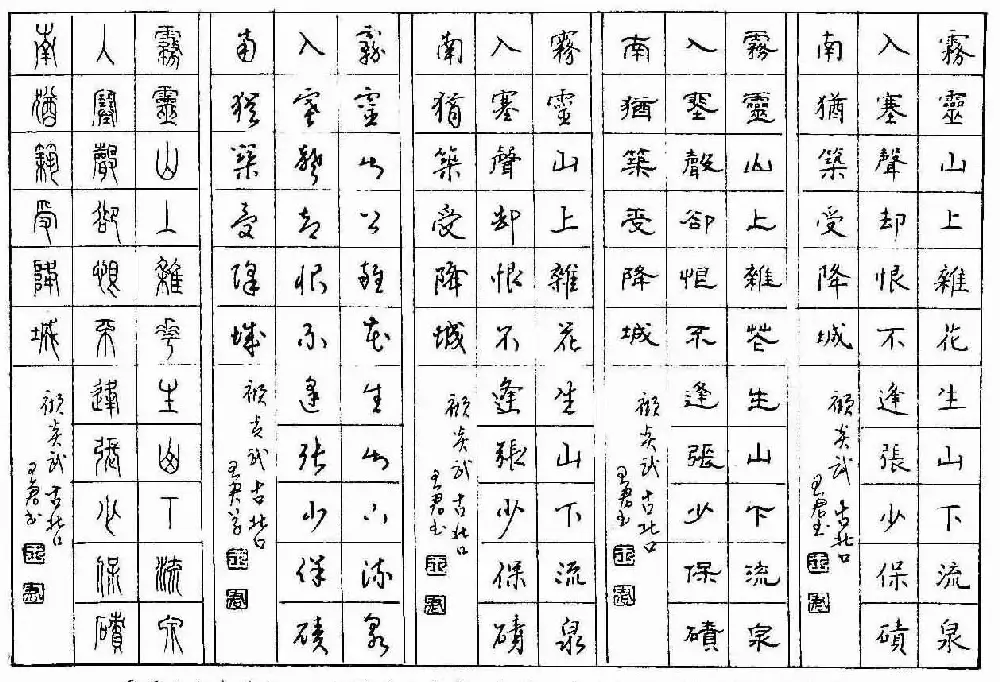 霧靈山上雜花生山下流泉
入塞聲却恨不逢張少保磧
南猶築受降城
顧炎武 古北口
王君書
霧靈山上雜花生山下流泉
入塞聲卻恨不逢張少保磧
南猶築受降城
顧炎武 古北口
王君书
霧靈山上雜花生山下流泉
入塞聲却恨不逢張少保磧
南猶築受降城
顧炎武 古北口
王君书
霧靈山上雜花生山下流泉
入塞聲却恨不逢張少保磧
南猶築受降城
顧炎武 古北口
王君草
霧靈山上雜花生山下流泉
入塞聲卻恨不逢張少保磧
南猶築受降城
顧炎武 古北口
王君书